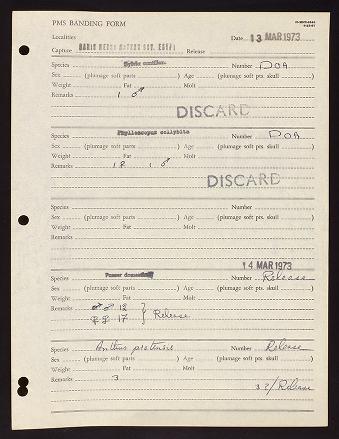 PMS BANDING FORM
Localities Date 13 MAR 1973
Capture EGYPT Release
Species Number DOA
Sex (plumage soft parts ) Age (plumage soft pts. skull )
Weight Fat Molt
Remarks 1 ♂
DISCARD
Species Phylloscopus collybita Number DOA
Sex (plumage soft parts ) Age (plumage soft pts. skull )
Weight Fat Molt
Remarks 1♀ 1♂
DISCARD
Species Number
Sex (plumage soft parts ) Age (plumage soft pts. skull )
Weight Fat Molt
Remarks
14 MAR 1973
Species Passer Number Release
Sex (plumage soft parts ) Age (plumage soft pts. skull )
Weight Fat Molt
Remarks ♂♂ 12
♀♀ 17 } Release
Species Anthus pratensis Number Release
Sex (plumage soft parts ) Age (plumage soft pts. skull )
Weight Fat Molt
Remarks 3
32/Release